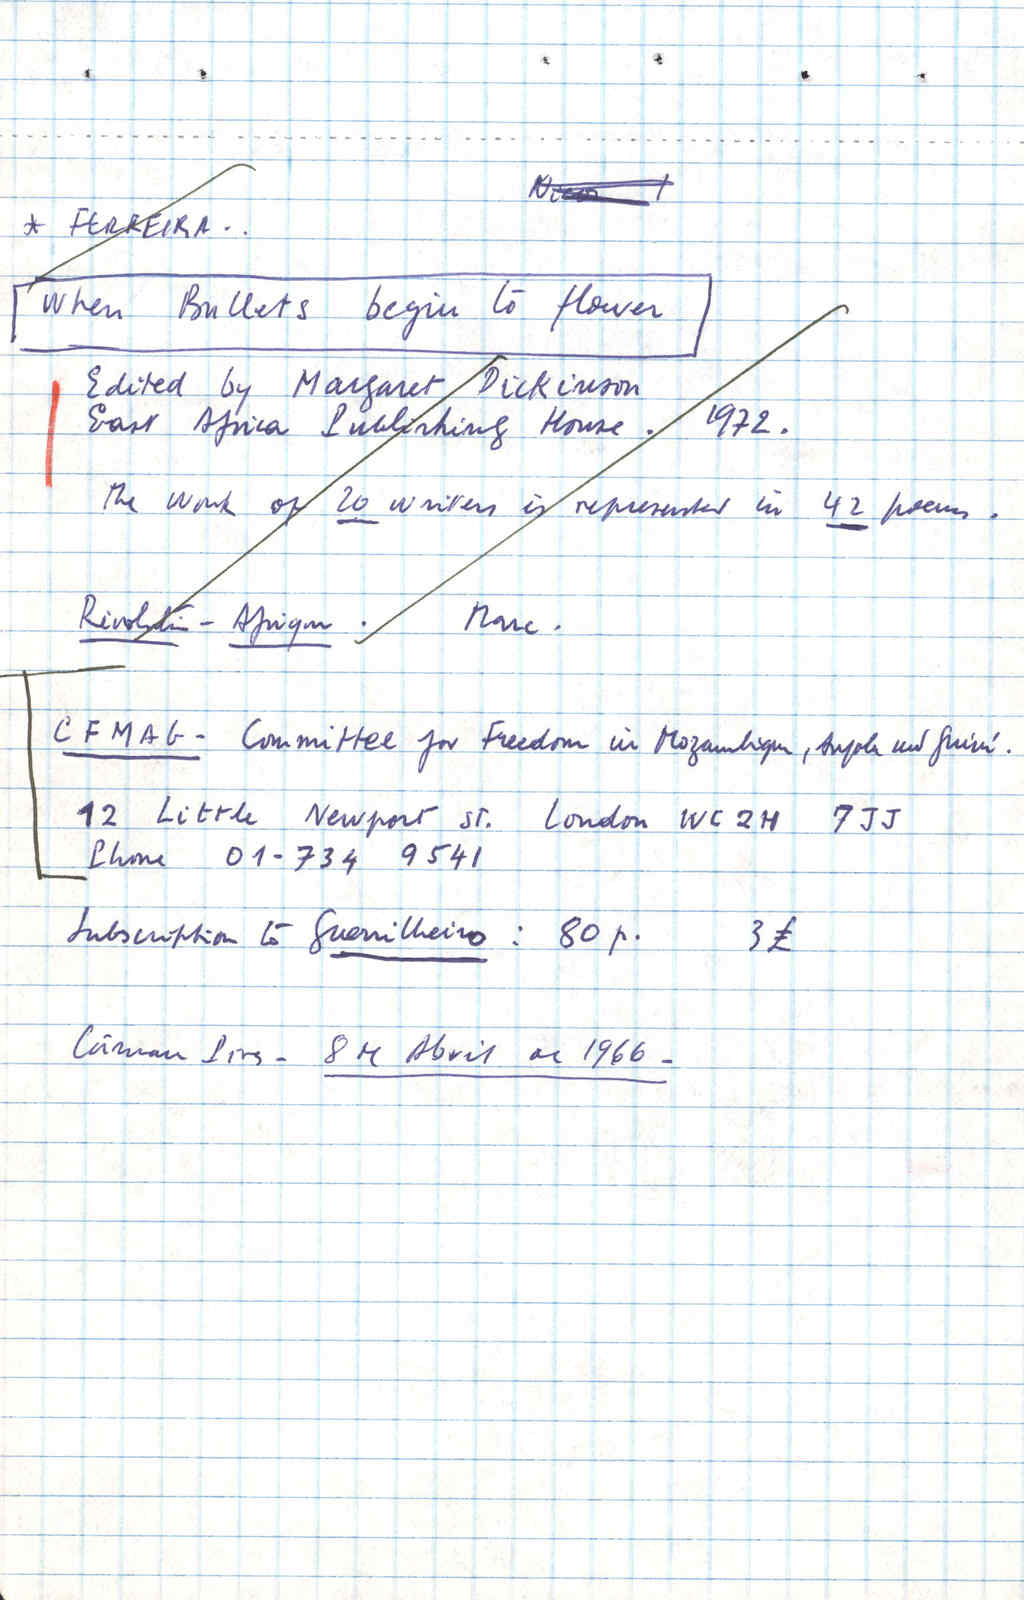 * FERREIRA..
When Bullets begin to flower
Edited by Margaret Dickinson
East Africa Publishing House. 1972.
The work of 20 writers is represented in 42 poems.
Afrique.
CFMAG - Committee for Freedom in Mozambique, Angola and Guiné.
12 Little Newport st. London WC2H 7JJ
Phone 01-734 9541
Subscription to Guerrilheiro: 80 p. 3£
8 de Abril de 1966 -